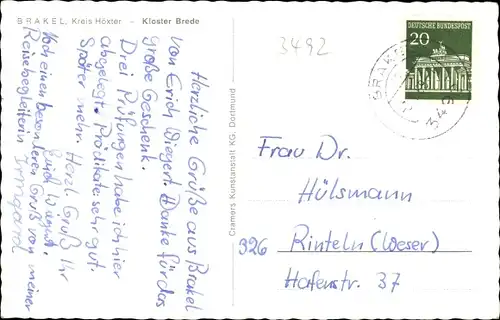 BRAKEL, Kreis Höxter - Kloster Brede
Herzliche Grüße aus Brakel
von Erich Wiegert. Danke für das
große Geschenk.
Drei Prüfungen habe ich hier
abgelegt. Prädikate: sehr gut.
Später mehr. Herzl. Gruß Ihr
Erich Wiegert.
Noch einen besonderen Gruß von meiner
Reisebegleiterin Irmgard
Cramers Kunstanstalt KG, Dortmund
3492
DEUTSCHE BUNDESPOST
20
BRAKEL
349
Frau Dr.
Hülsmann
326 Rinteln (Weser)
Hafenstr. 37